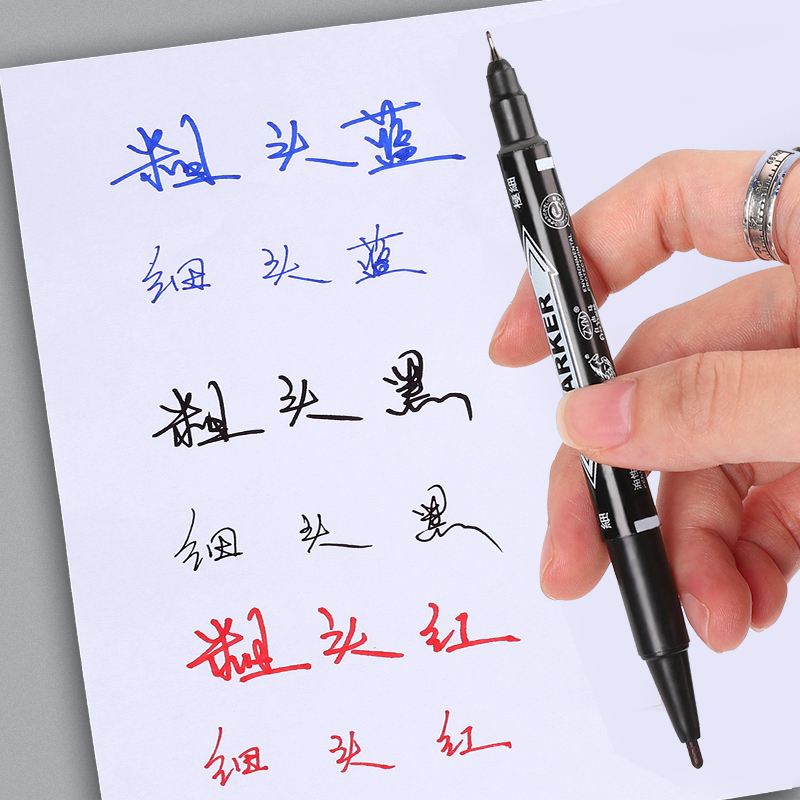 粗头蓝
细头蓝
粗头黑
细头黑
粗头红
细头红
極細
ENVIRONMENTAL
ARKER
ZYM
細